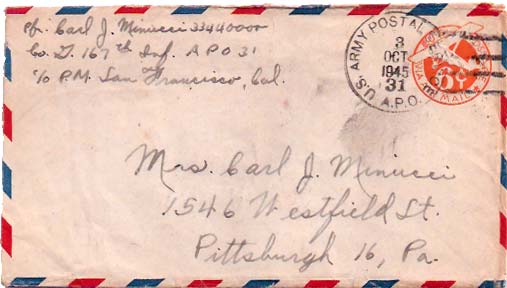 Pfc. Carl J. Minucci 33440000
Co. G. 167th Inf. A.P.O 31
c/o P.M. San Francisco, Cal.
U.S. ARMY POSTAL
A.P.O.
3
OCT
1945
31
6¢
VIA AIR MAIL
Mrs. Carl J. Minucci
1546 Westfield St.
Pittsburgh 16, Pa.